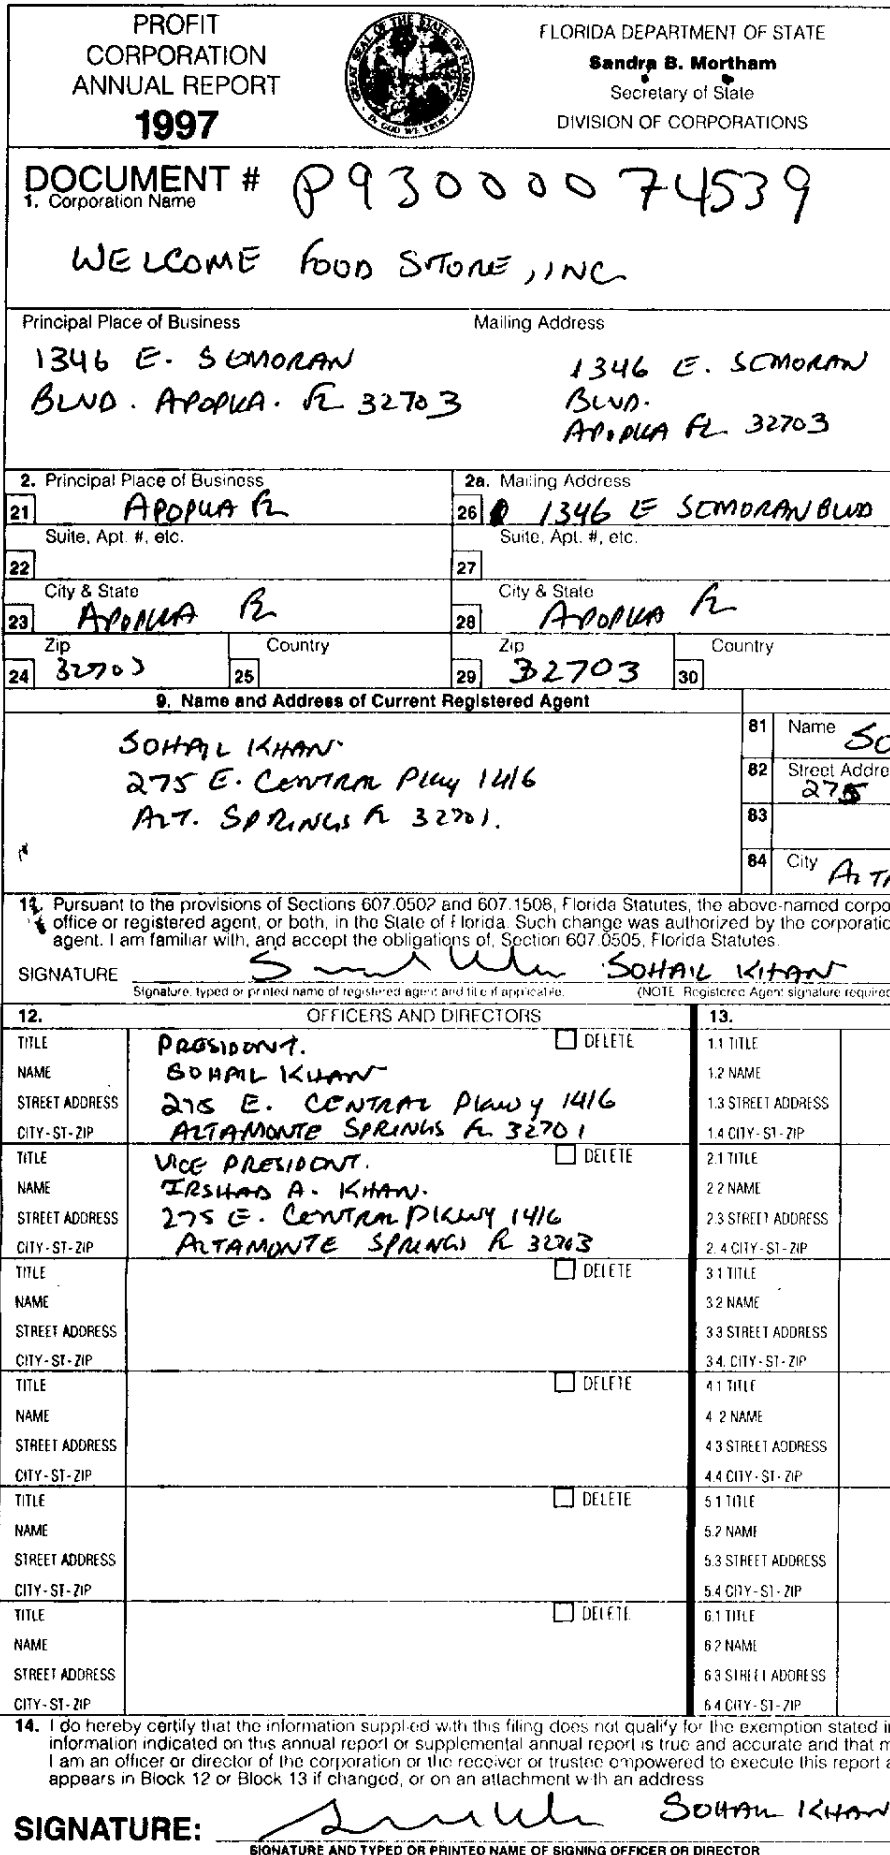 PROFIT
CORPORATION
ANNUAL REPORT
1997
GREAT SEAL OF THE STATE OF FLORIDA
IN GOD WE TRUST
FLORIDA DEPARTMENT OF STATE
Sandra B. Mortham
Secretary of State
DIVISION OF CORPORATIONS
DOCUMENT # P93000074539
1. Corporation Name
WELCOME FOOD STORE, INC
Principal Place of Business
1346 E. SEMORAN
BLVD. APOPKA. FL 32703
Mailing Address
1346 E. SEMORAN
BLVD.
APOPKA FL 32703
2. Principal Place of Business
21 APOPKA FL
2a. Mailing Address
26 1346 E SEMORAN BLVD
Suite, Apt. #, etc.
22
Suite, Apt. #, etc.
27
City & State
23 APOPKA FL
City & State
28 APOPKA FL
Zip
24 32703
Country
25
Zip
29 32703
Country
30
9. Name and Address of Current Registered Agent
SOHAIL KHAN
275 E. CENTRAL PKWY 1416
ALT. SPRINGS FL 32701.
81 Name SO
82 Street Addre
275
83
84 City ALTA
11. Pursuant to the provisions of Sections 607.0502 and 607.1508, Florida Statutes, the above-named corpo
office or registered agent, or both, in the State of Florida. Such change was authorized by the corporatio
agent. I am familiar with, and accept the obligations of, Section 607.0505, Florida Statutes.
SIGNATURE SOHAIL KHAN
Signature, typed or printed name of registered agent and title if applicable. (NOTE Registered Agent signature required
12. OFFICERS AND DIRECTORS
13.
TITLE PRESIDENT. DELETE
NAME SOHAIL KHAN
STREET ADDRESS 275 E. CENTRAL PKWY 1416
CITY-ST-ZIP ALTAMONTE SPRINGS FL 32701
1.1 TITLE
1.2 NAME
1.3 STREET ADDRESS
1.4 CITY-ST-ZIP
TITLE VICE PRESIDENT. DELETE
NAME IRSHAD A. KHAN.
STREET ADDRESS 275 E. CENTRAL PKWY 1416
CITY-ST-ZIP ALTAMONTE SPRINGS FL 32703
2.1 TITLE
2.2 NAME
2.3 STREET ADDRESS
2.4 CITY-ST-ZIP
TITLE DELETE
NAME
STREET ADDRESS
CITY-ST-ZIP
3.1 TITLE
3.2 NAME
3.3 STREET ADDRESS
3.4. CITY-ST-ZIP
TITLE DELETE
NAME
STREET ADDRESS
CITY-ST-ZIP
4.1 TITLE
4.2 NAME
4.3 STREET ADDRESS
4.4 CITY-ST-ZIP
TITLE DELETE
NAME
STREET ADDRESS
CITY-ST-ZIP
5.1 TITLE
5.2 NAME
5.3 STREET ADDRESS
5.4 CITY-ST-ZIP
TITLE DELETE
NAME
STREET ADDRESS
CITY-ST-ZIP
6.1 TITLE
6.2 NAME
6.3 STREET ADDRESS
6.4 CITY-ST-ZIP
14. I do hereby certify that the information supplied with this filing does not qualify for the exemption stated i
information indicated on this annual report or supplemental annual report is true and accurate and that m
I am an officer or director of the corporation or the receiver or trustee empowered to execute this report a
appears in Block 12 or Block 13 if changed, or on an attachment with an address
SIGNATURE: SOHAIL KHAN
SIGNATURE AND TYPED OR PRINTED NAME OF SIGNING OFFICER OR DIRECTOR